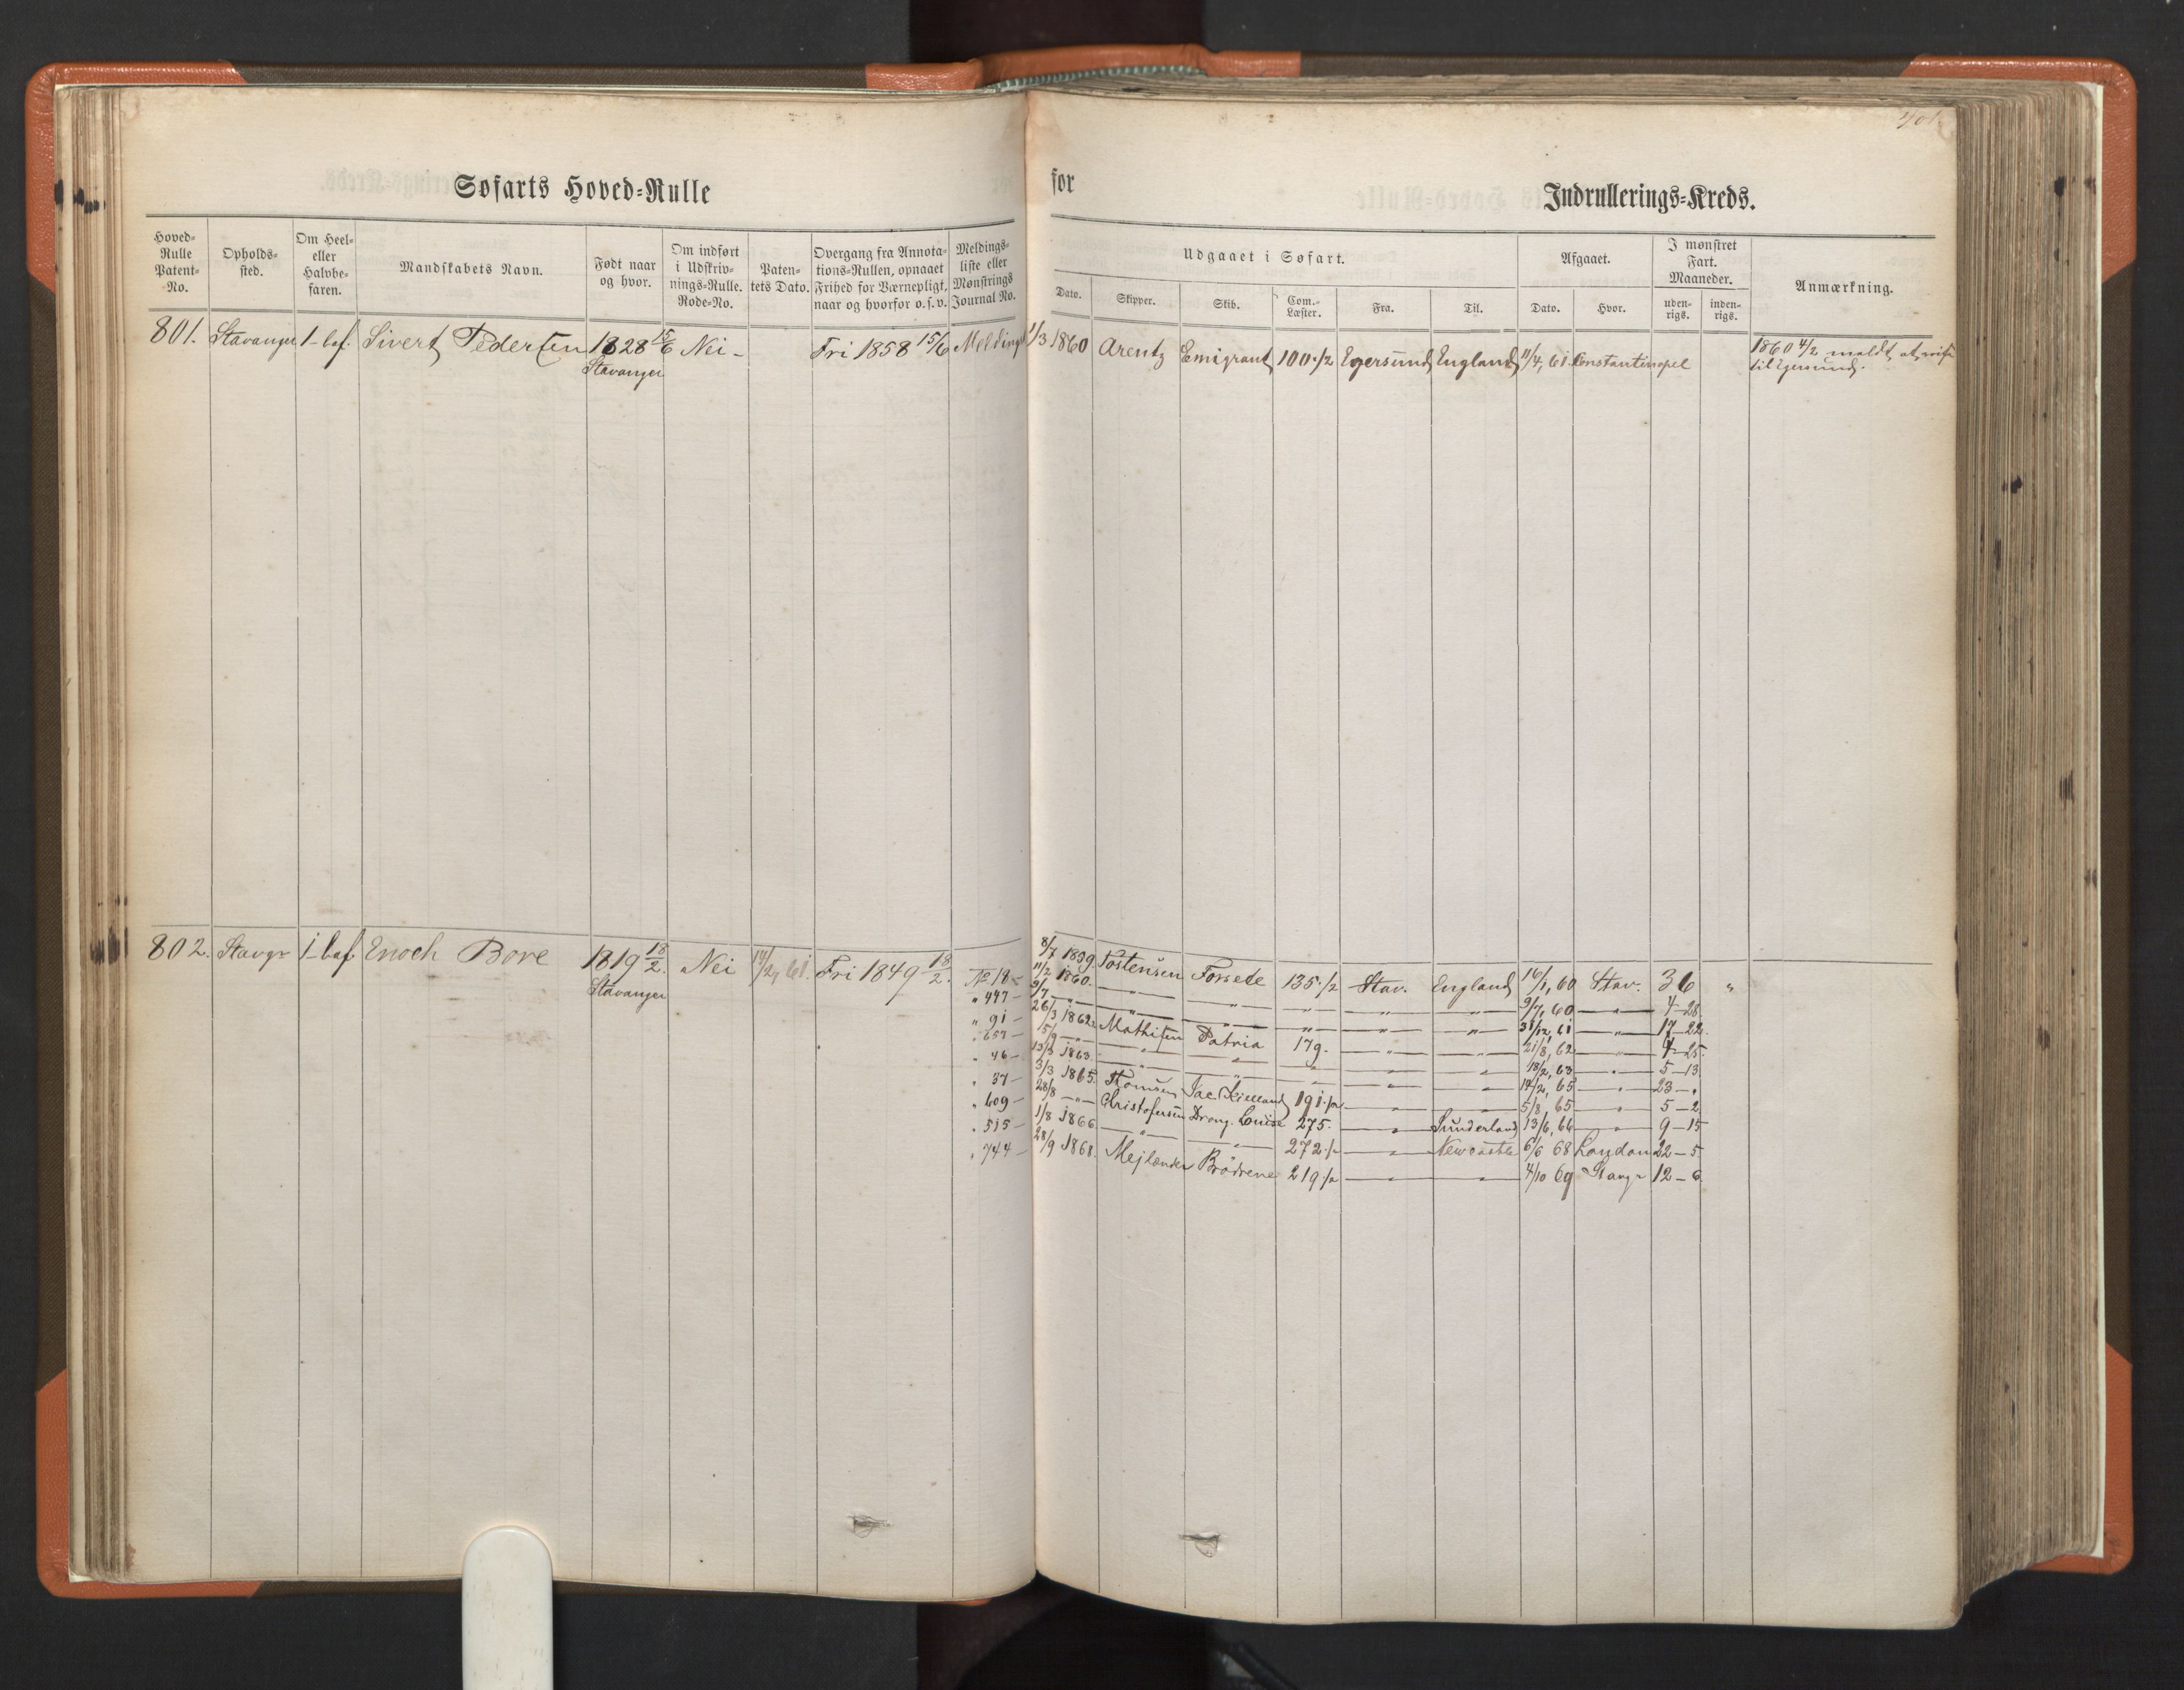 401
Søfarts Hoved-Rulle
for
Indrullerings-Kreds.
Hoved-Rulle Patent-No.
Opholds-sted.
Om Heel- eller Halvbe-faren.
Mandskabets Navn.
Født naar og hvor.
Om indført i Udskriv-nings-Rulle. Rode-No.
Paten-tets Dato.
Overgang fra Annota-tions-Rullen, opnaaet Frihed for Værnepligt, naar og hvorfor o.s.v.
Meldings-liste eller Mønstrings Journal No.
Udgaaet i Søfart.
Dato.
Skipper.
Skib.
Com.-Læster.
Fra.
Til.
Afgaaet.
Dato.
Hvor.
I mønstret Fart. Maaneder.
uden-rigs.
inden-rigs.
Anmærkning.
801. Stavanger 1-bef. Sivert Pedersen 1828 15/6 Nei- Fri 1858 15/6 Meldings 1/3 1860 Arentz Emigrant 100 1/2 Egersund England 11/4, 61. Constantinopel 1860 4/2 meldt at reise
Stavanger til Egersund.
802. Stavgr 1-bef. Enoch Bore 1819 18/2. Nei 14/2, 61. Fri 1849 18/2. No 18- 8/7 1839. Tostensen Forsete 135 1/2 Stav. England 16/1, 60 Stav. 36 "
Stavanger
" 447- 11/2 1860. —"— —"— —"— —"— —"— 9/7, 60 —"— 4-28.
" 91- 9/7 —"— —"— —"— —"— —"— —"— 31/12, 61 —"— 17-22.
" 657- 26/3 1862. Mathisen Patria 179. —"— —"— 21/8, 62 —"— 4-25.
" 46- 5/9 —"— —"— —"— —"— —"— —"— 18/2, 63 —"— 5-13.
" 37- 13/3 1863. —"— —"— —"— —"— —"— 14/2, 65 —"— 23-"
" 609- 3/3 1865. Thomsen Jac Kielland 191 1/2 —"— —"— 5/8, 65 —"— 5-2
" 515- 28/8 —"— Christofersen Drong. Louise 275. —"— Sunderland 13/6, 66 —"— 9-15
" 744- 1/8 1866. —"— —"— 272 1/2 —"— Newcastle 6/6 68 London 22-5
28/9 1868. Mejlænder Brødrene 219 1/2 —"— —"— 4/10 69 Stavgr 12-6